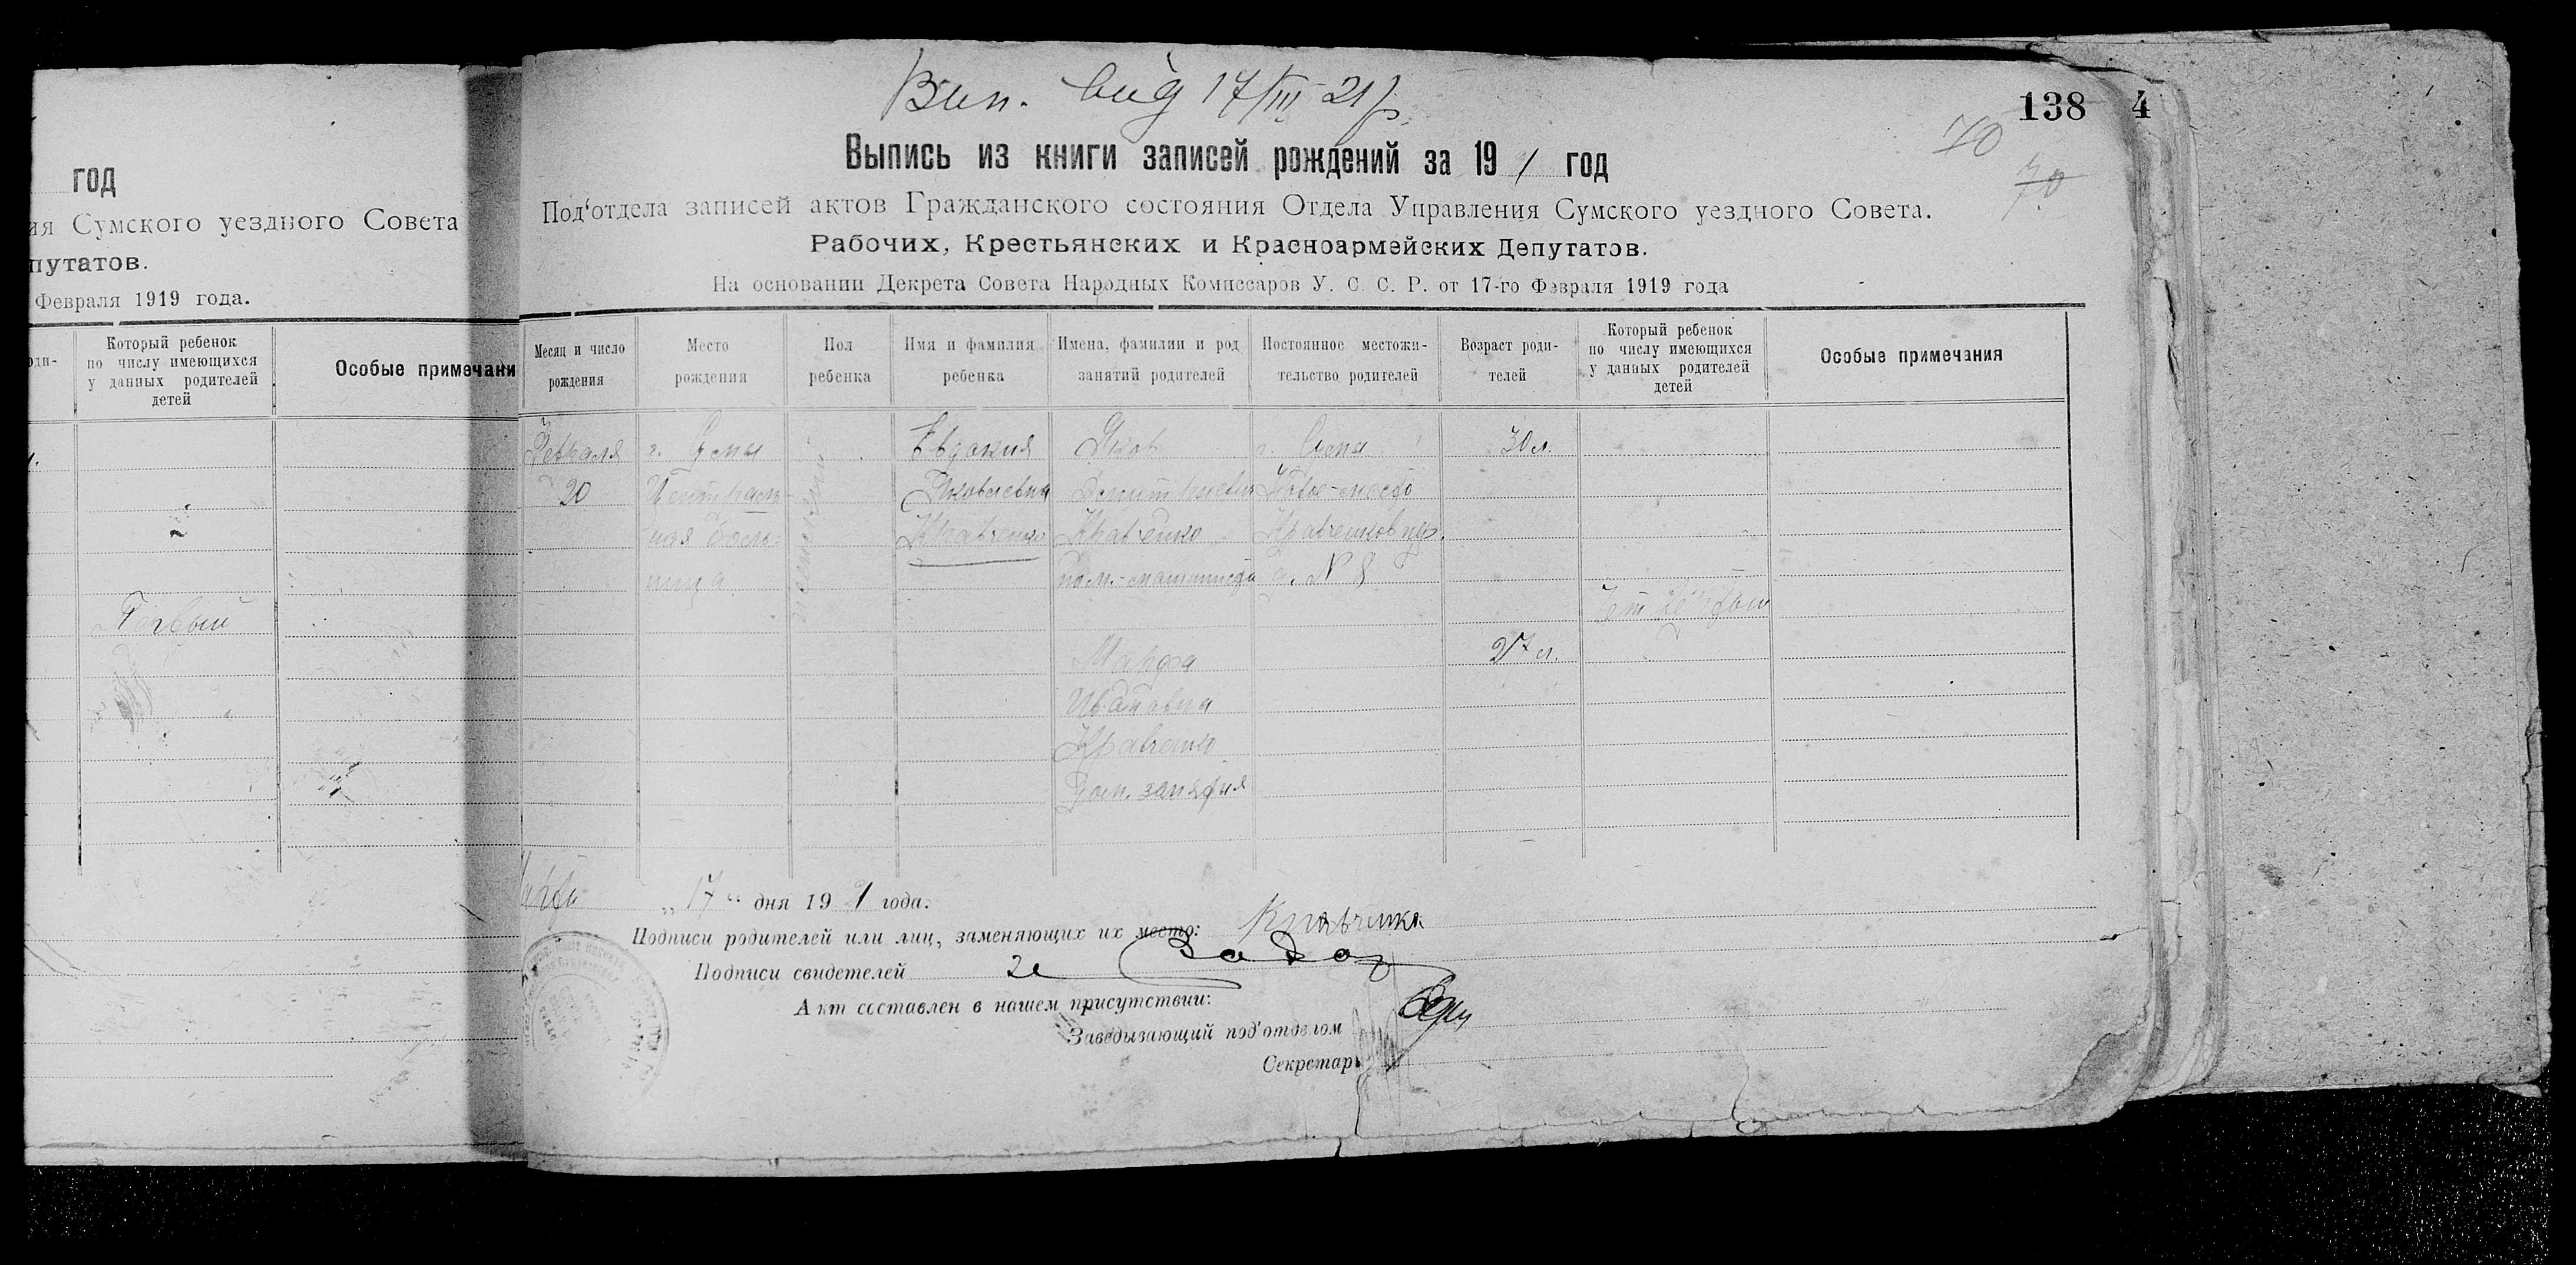 год
ия Сумского уездного Совета
путатов.
Февраля 1919 года.
оди-
Который ребенок
по числу имеющихся
у данных родителей
детей
Особые примечани
Первый
Вип. вид 17/III 21 р.
138 4
70
70
Выпись из книги записей рождений за 19 1 год
Под‘отдела записей актов Гражданского состояния Отдела Управления Сумского уездного Совета.
Рабочих, Крестьянских и Красноармейских Депутатов.
На основании Декрета Совета Народных Комиссаров У. С. С. Р. от 17-го Февраля 1919 года
Месяц и число
рождения
Место
рождения
Пол
ребенка
Имя и фамилия
ребенка
Имена, фамилии и род
занятий родителей
Постоянное местожи-
тельство родителей
Возраст роди-
телей
Который ребенок
по числу имеющихся
у данных родителей
детей
Особые примечания
Февраля
20
г. Сумы
Централь-
ная боль-
ница
женский
Евдокия
Яковлевна
Кравченко
Яков
Дмитриевич
Кравченко
пом. машиниста
г. Сумы
Новое-место
Кравченков пер.
д. № 8
30 л.
Четвертый
Марфа
Ивановна
Кравченко
Дом. занятия
27 л.
Марта „17“ дня 19 21 года.
Подписи родителей или лиц, заменяющих их место: Кравченко
Подписи свидетелей
Акт составлен в нашем присутствии:
Заведывающий под‘отделом
Секретарь